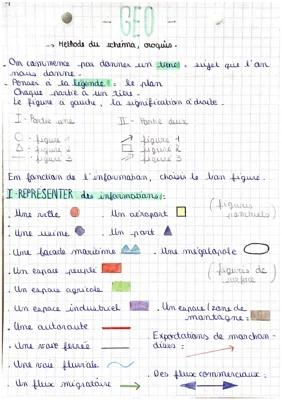 - GEO -
→ Méthode du schéma, croquis.
- On commence par donner un titre : sujet que l'on nous donne.
- Penser à la légende : le plan
Chaque partie a un titre.
Le figuré à gauche, la signification à droite.
I - Partie une II - Partie deux
- figuré 1 figuré 1
- figuré 2 figuré 2
- figuré 3 figuré 3
En fonction de l'information, choisir le bon figuré.
I - REPRÉSENTER des informations :
. Une ville . Un aéroport (figurés ponctuels)
. Une usine . Un port
. Une façade maritime . Une mégalopole
. Un espace peuplé (figurés de surface)
. Un espace agricole
. Un espace industriel . Un espace/zone de montagne :
. Une autoroute Exportations de marchandises :
. Une voie ferrée
. Une voie fluviale . Des flux commerciaux :
. Un flux migratoire